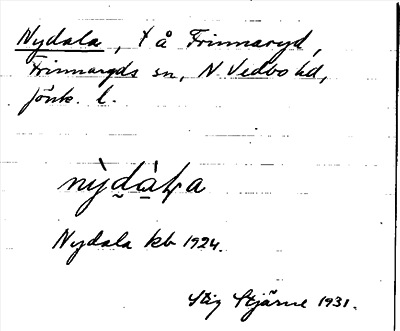 Nydala, t å Frinnaryd,
Frinnaryds sn, N Vedbo hd,
Jönk. l.
nỳdàḷa
Nydala kb 1924.
Stig Stjärne 1931.